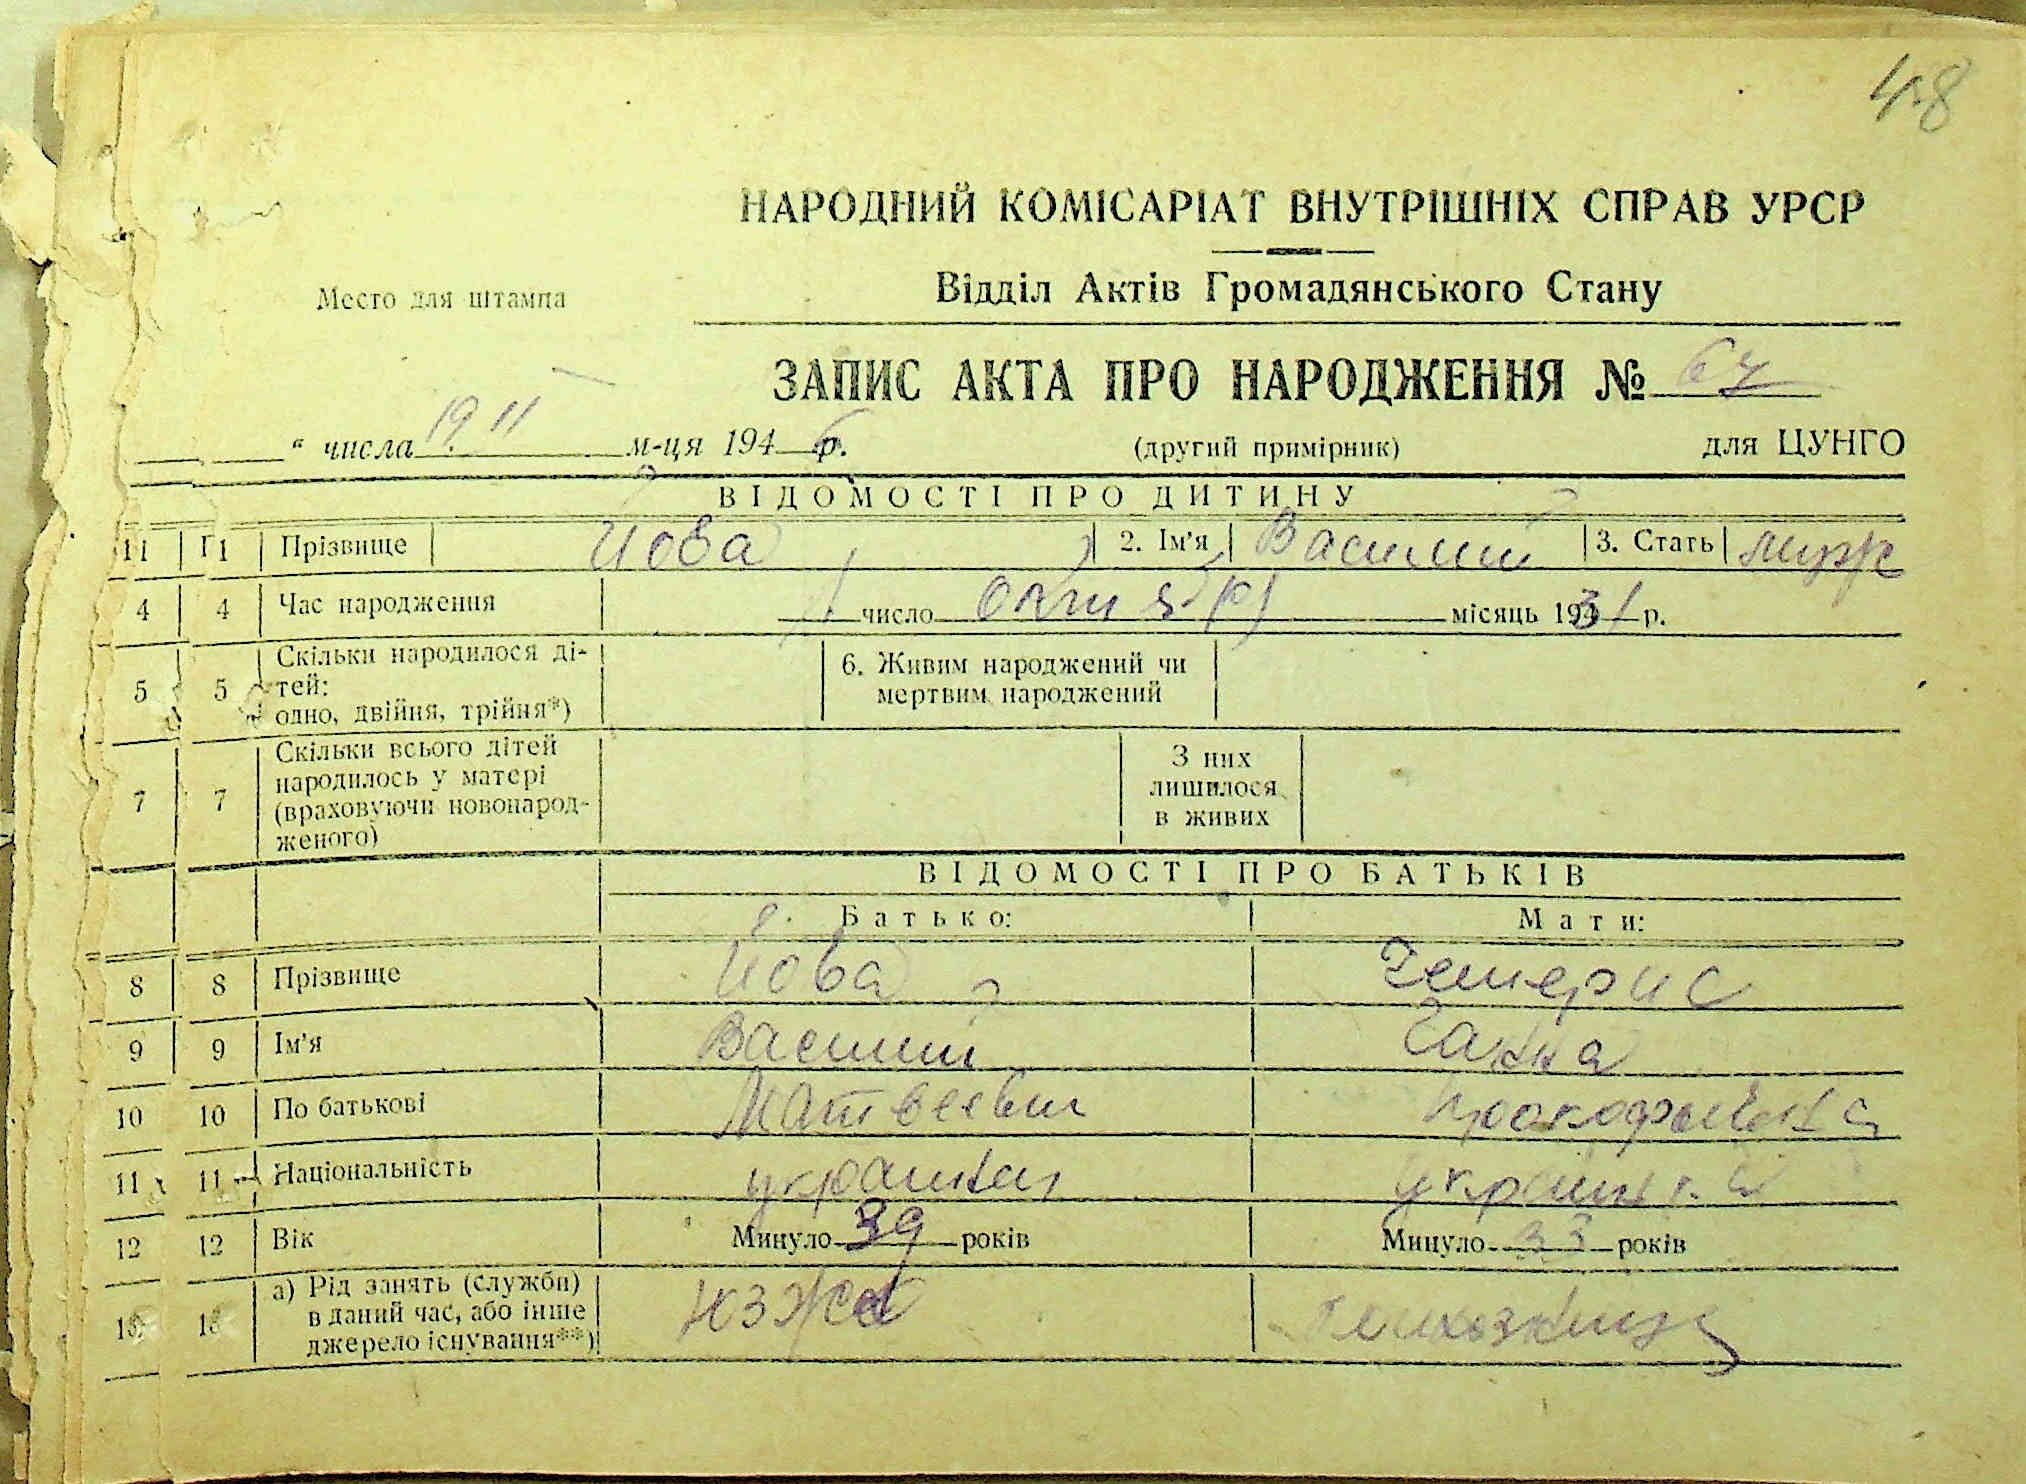 48
НАРОДНИЙ КОМІСАРІАТ ВНУТРІШНІХ СПРАВ УРСР
Відділ Актів Громадянського Стану
Место для штампа
ЗАПИС АКТА ПРО НАРОДЖЕННЯ № 67
“ числа 19 11 м-ця 1946 р. (другий примірник) для ЦУНГО
ВІДОМОСТІ ПРО ДИТИНУ
11 1 Прізвище Йова 2. Ім'я Василий 3. Стать муж
4 4 Час народження 1 число Октября місяць 1931 р.
5 5 Скільки народилося ді-
тей:
одно, двійня, трійня*)
6. Живим народжений чи
мертвим народжений
7 7 Скільки всього дітей
народилось у матері
(враховуючи новонарод-
женого)
З них
лишилося
в живих
ВІДОМОСТІ ПРО БАТЬКІВ
Батько: Мати:
8 8 Прізвище Йова Чемерис
9 9 Ім'я Василий Ганна
10 10 По батькові Матвеевич Прокофьевна
11 11 Національність украинец украинка
12 12 Вік Минуло 39 років Минуло 33 років
13 13 а) Рід занять (служби)
в даний час, або інше
джерело існування**)